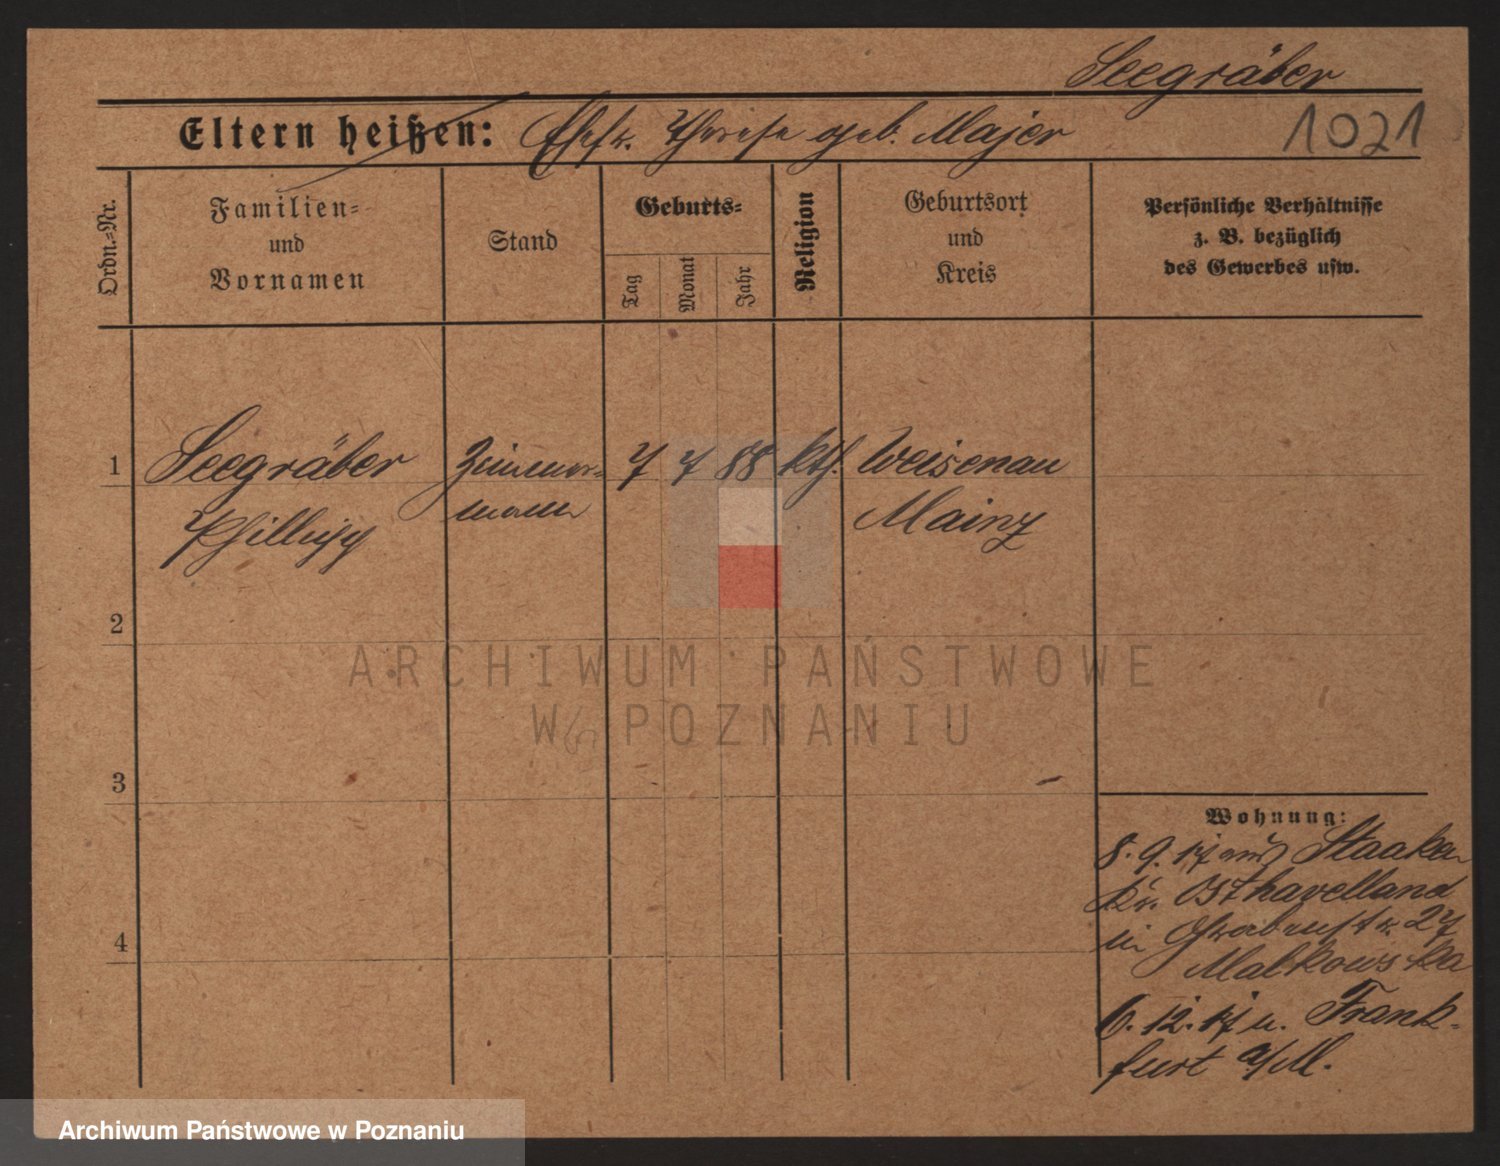 Seegräber
Eltern heißen: Ehefr. Therese geb. Majer
1021
Ordn.-Nr.
Familien-
und
Vornamen
Stand
Geburts-
Tag
Monat
Jahr
Religion
Geburtsort
und
Kreis
Persönliche Verhältnisse
z. B. bezüglich
des Gewerbes usw.
1 Seegräber Zimmer- 7 7 88 kth. Weisenau
Phillipp mann Mainz
2
ARCHIWUM PAŃSTWOWE
W POZNANIU
3
4
Wohnung:
8. 9. 17 aus Staaken
Kr. Osthavelland
in 27
Malkowska
6. 12. 17 n. Frank-
furt a/M.
Archiwum Państwowe w Poznaniu